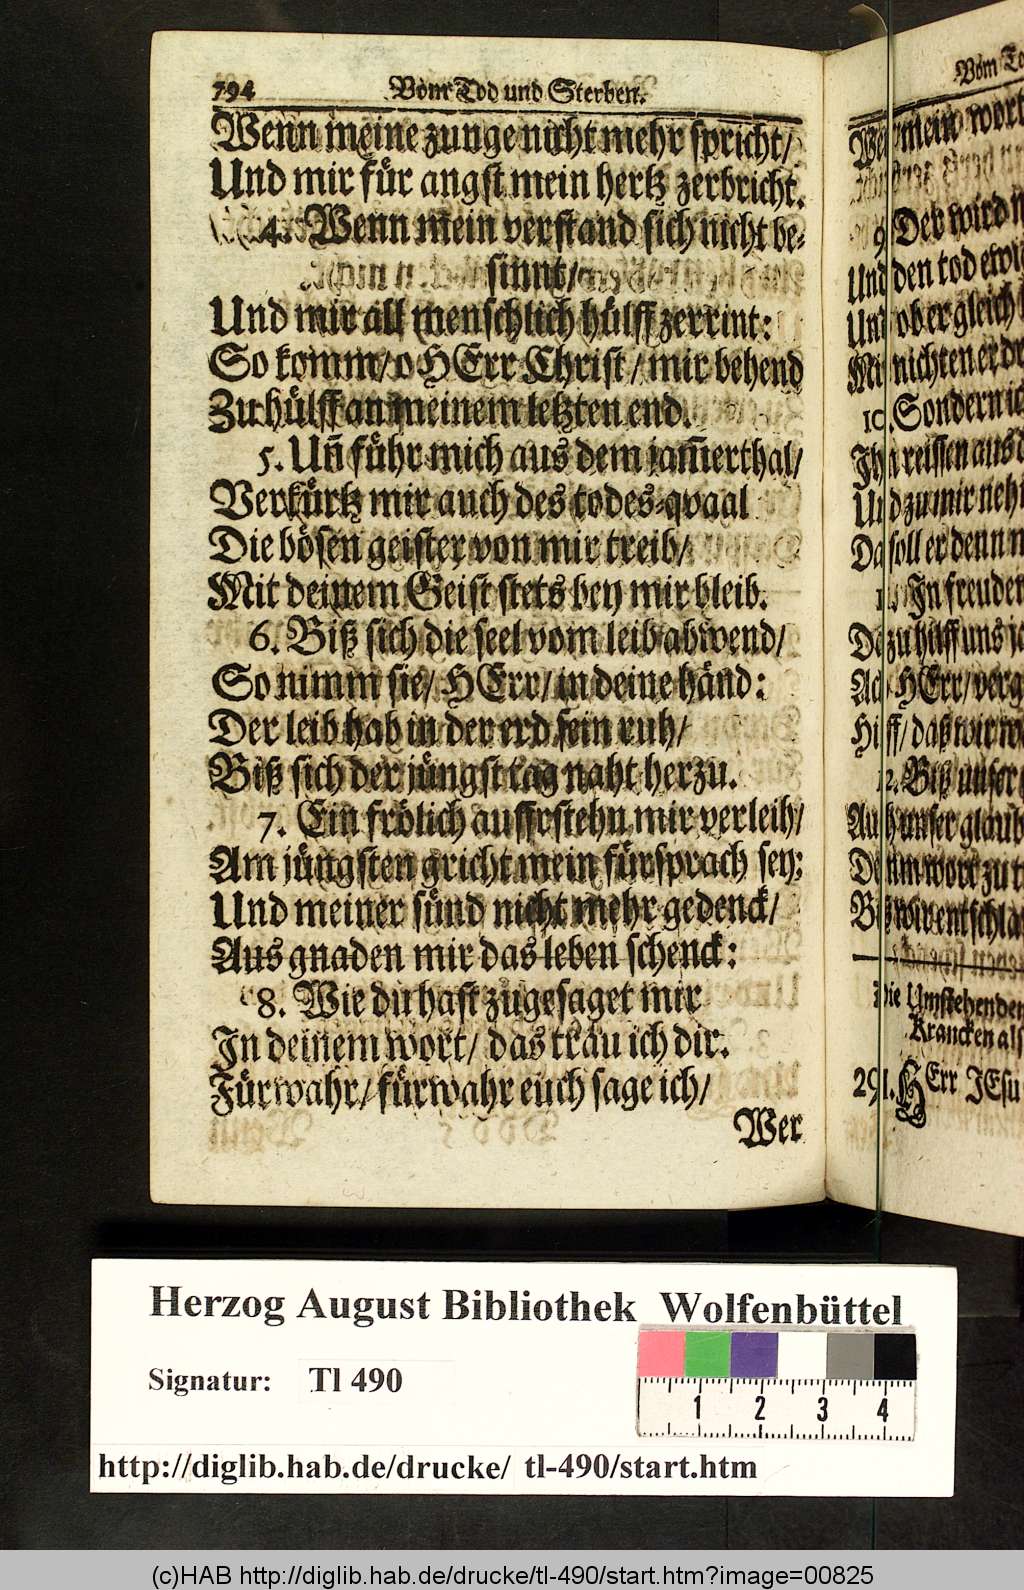 794 Vom Tod und Sterben.
Wenn meine zunge nicht mehr spricht/
Und mir für angst mein hertz zerbricht.
4. Wenn mein verstand sich nicht be-
sinnt/
Und mir all menschlich hülff zerrint:
So komm/ o HErr Christ/ mir behend
Zu hülff an meinem letzten end.
5. Uñ führ mich aus dem jam̃erthal/
Verkürtz mir auch des todes-qvaal
Die bösen geister von mir treib/
Mit deinem Geist stets bey mir bleib.
6. Biß sich die seel vom leib abwend/
So nimm sie/ HErr/ in deine händ:
Der leib hab in der erd sein ruh/
Biß sich der jüngst tag naht herzu.
7. Ein frölich auffrstehn mir verleih/
Am jüngsten gricht mein fürsprach sey:
Und meiner sünd nicht mehr gedenck/
Aus gnaden mir das leben schenck:
8. Wie du hast zugesaget mir
In deinem wort/ das trau ich dir.
Fürwahr/ fürwahr euch sage ich/
Wer
Vom
mein wort
9. Der wird
Und den tod
Und ob er gleich
Mit nichten er
10. Sondern
Ihn reissen aus
Und zu mir
Da soll er denn
In freuden
Dazu hilff uns
Ach HErr/
Hilff/ daß wir
12. Biß unser
Auch unser
Dem wort zu
Biß wir
Die Umstehenden
Krancken
291. HErr JEsu
Herzog August Bibliothek Wolfenbüttel
Signatur: Tl 490
1 2 3 4
http://diglib.hab.de/drucke/ tl-490/start.htm
(c)HAB http://diglib.hab.de/drucke/tl-490/start.htm?image=00825